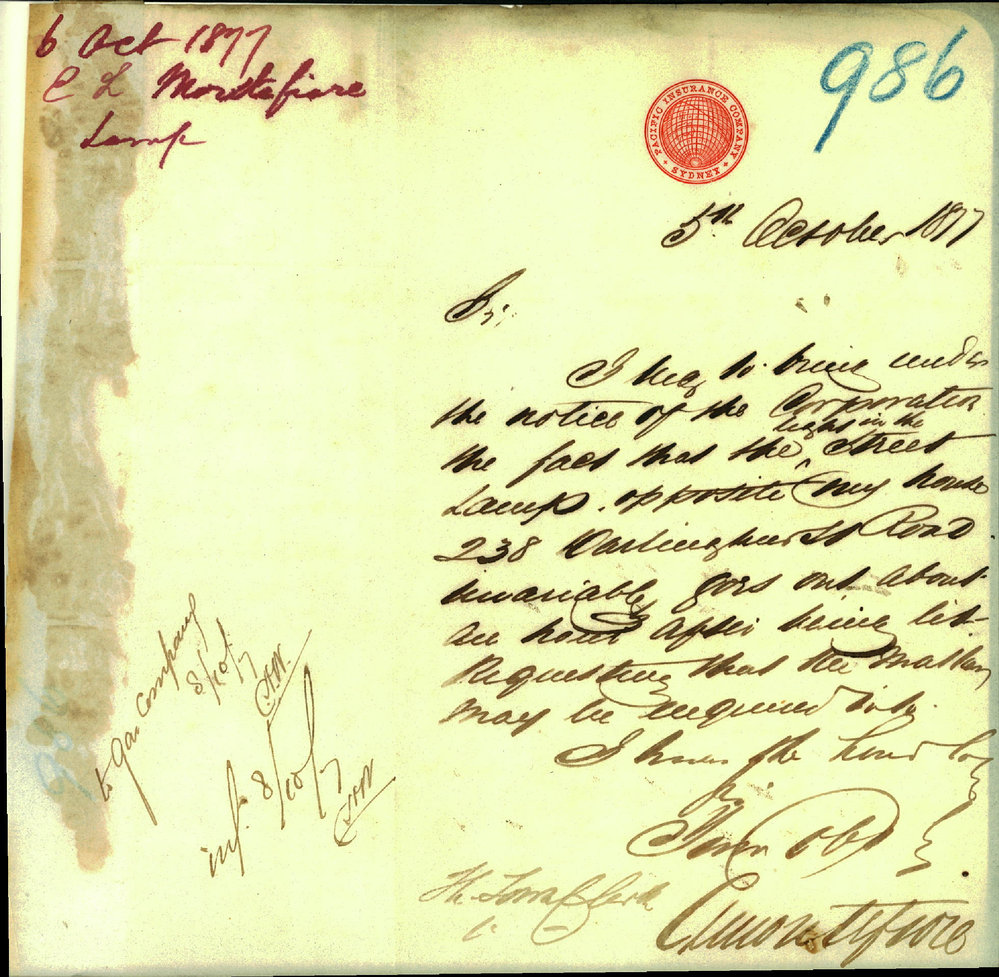 6 Oct 1877
E L Montefiore
Lamp
986
PACIFIC INSURANCE COMPANY
SYDNEY
5th October 1877
Sir,
I beg to bring under
the notice of the Corporation
light in the
the fact that the ^ Street
Lamp opposite my house
238 Darlinghurst Road
invariably goes out about
an hour after being lit
Requesting that the matter
may be enquired into.
I have the honor to
Sir
Your Obt
The Town Clerk
E L Montefiore
to Gas Company
8/10/7
inf. 8/10/7